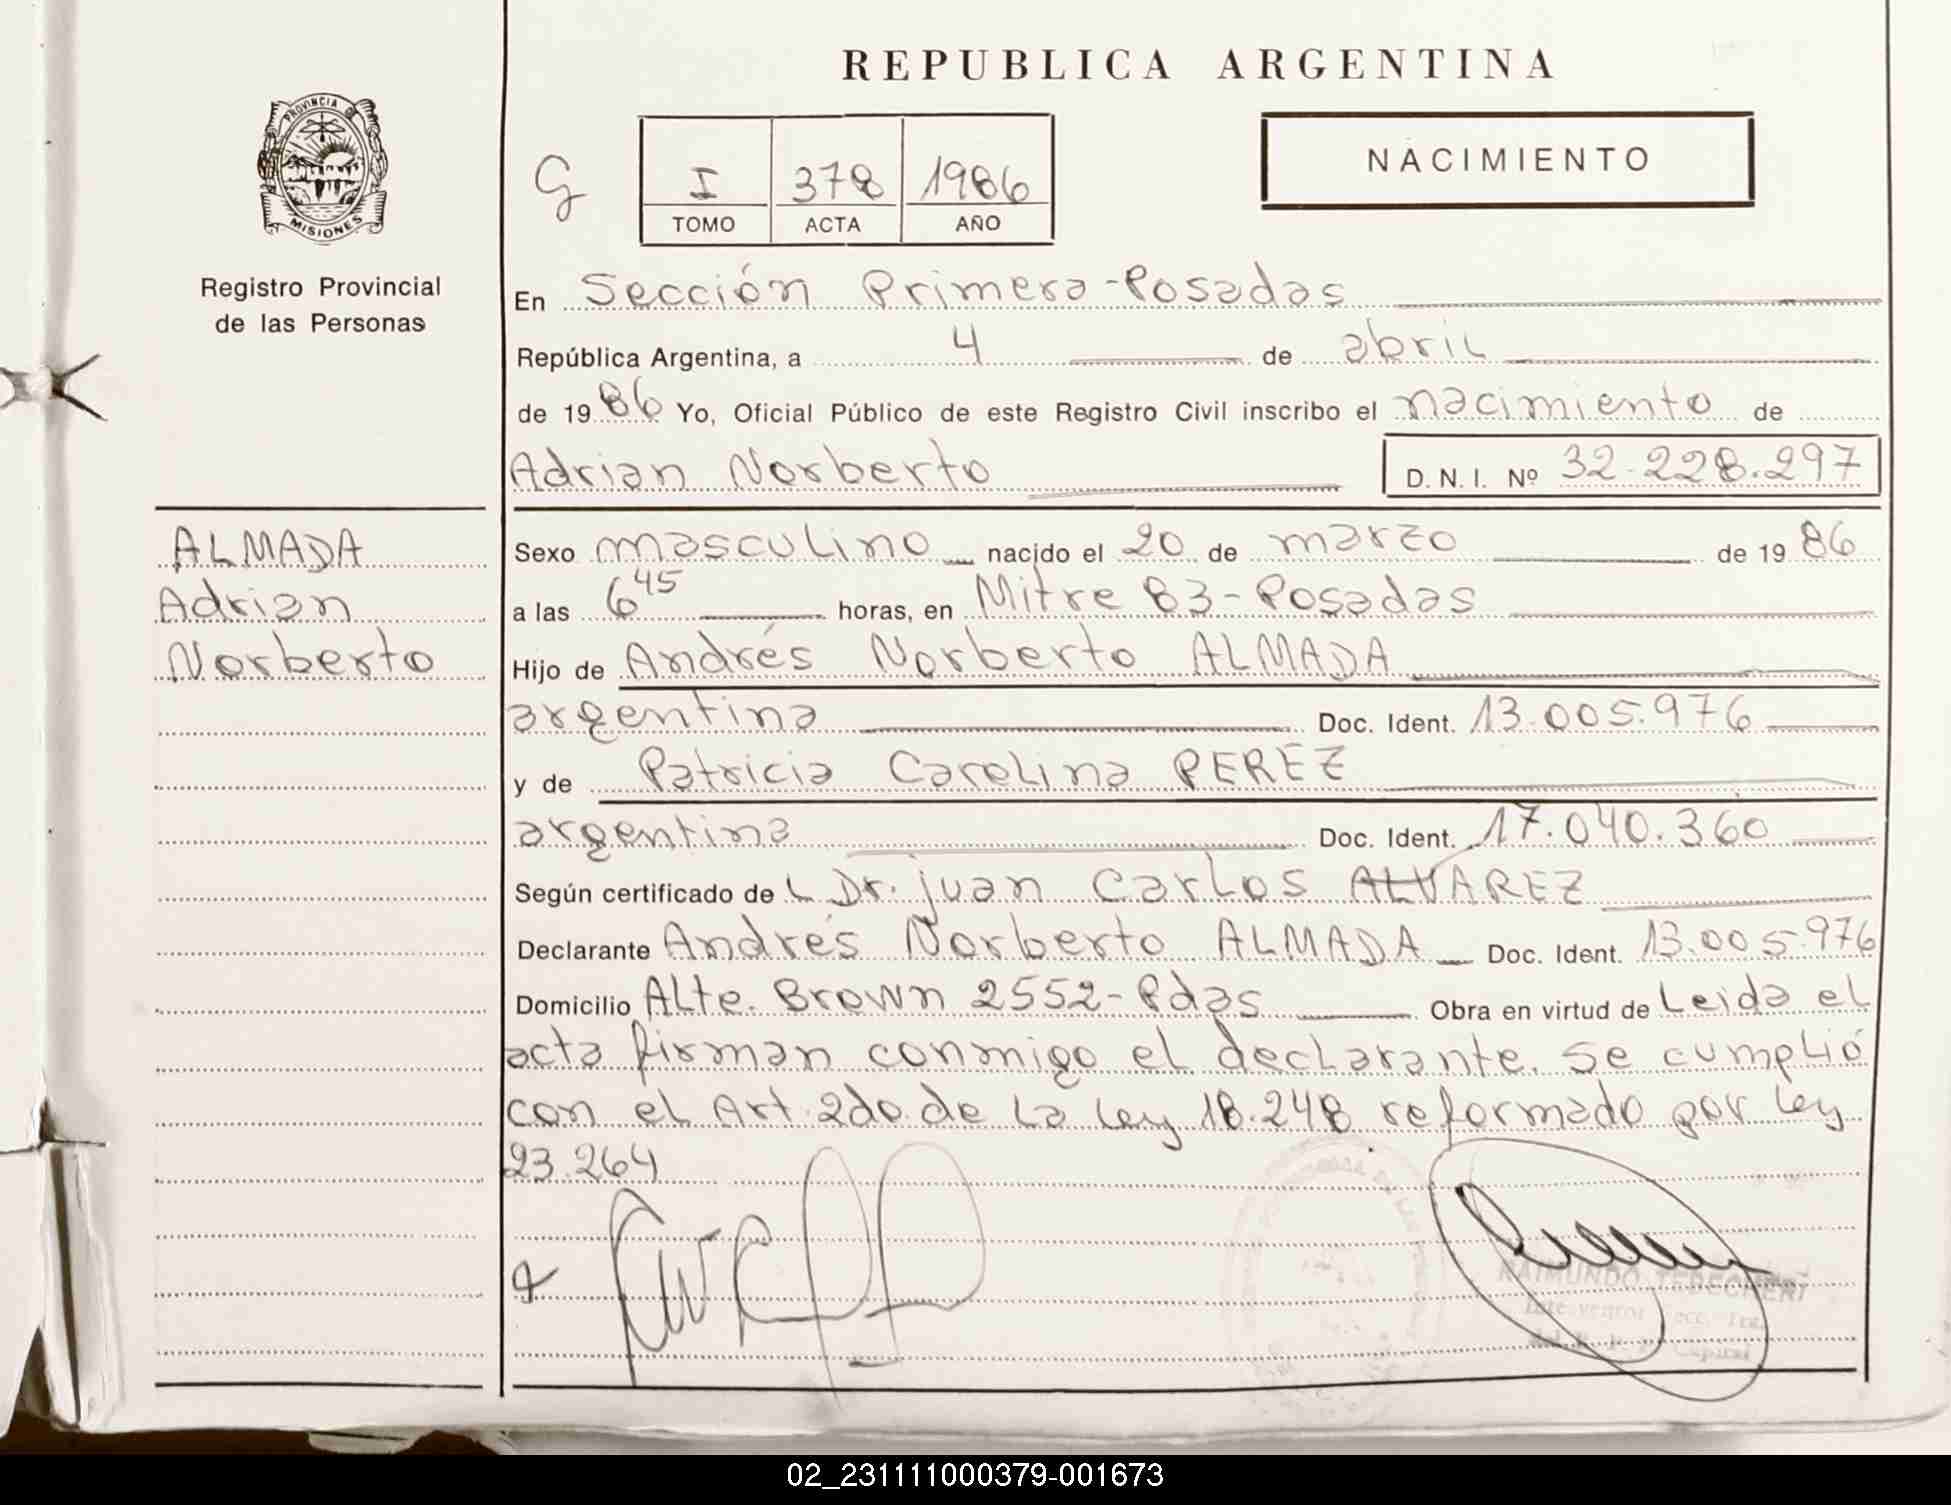 REPUBLICA ARGENTINA
PROVINCIA DE
MISIONES
Registro Provincial
de las Personas
G
I 378 1986
TOMO ACTA AÑO
NACIMIENTO
En Sección Primera-Posadas
República Argentina, a 4 de abril
de 1986 Yo, Oficial Público de este Registro Civil inscribo el nacimiento de
Adrian Norberto D. N. I. Nº 32.228.297
ALMADA
Adrian
Norberto
Sexo masculino nacido el 20 de marzo de 1986
a las 6 45 horas, en Mitre 83-Posadas
Hijo de Andrés Norberto ALMADA
argentina Doc. Ident. 13.005.976
y de Patricia Carolina PEREZ
argentina Doc. Ident. 17.040.360
Según certificado de L Dr. juan Carlos ALVAREZ
Declarante Andrés Norberto ALMADA Doc. Ident. 13.005.976
Domicilio ALte. Brown 2552-Pdas Obra en virtud de Leida el
acta firman conmigo el declarante. Se cumplió
con el Art. 2do. de La Ley 18.248 reformado por Ley
23.264
RAIMUNDO
02_231111000379-001673